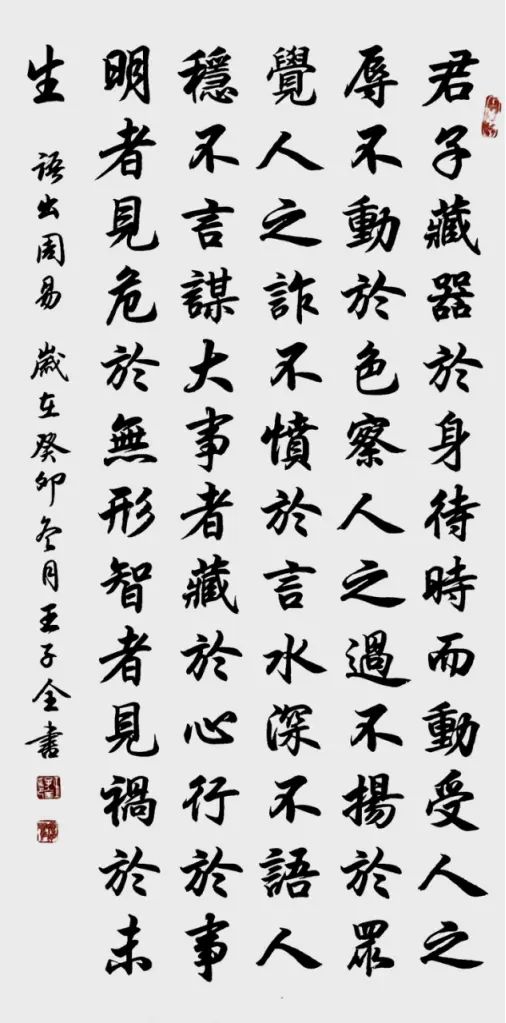 君子藏器於身待時而動受人之
辱不動於色察人之過不揚於眾
覺人之詐不憤於言水深不語人
穩不言謀大事者藏於心行於事
明者見危於無形智者見禍於未
生
語出周易 歲在癸卯冬月王子全書